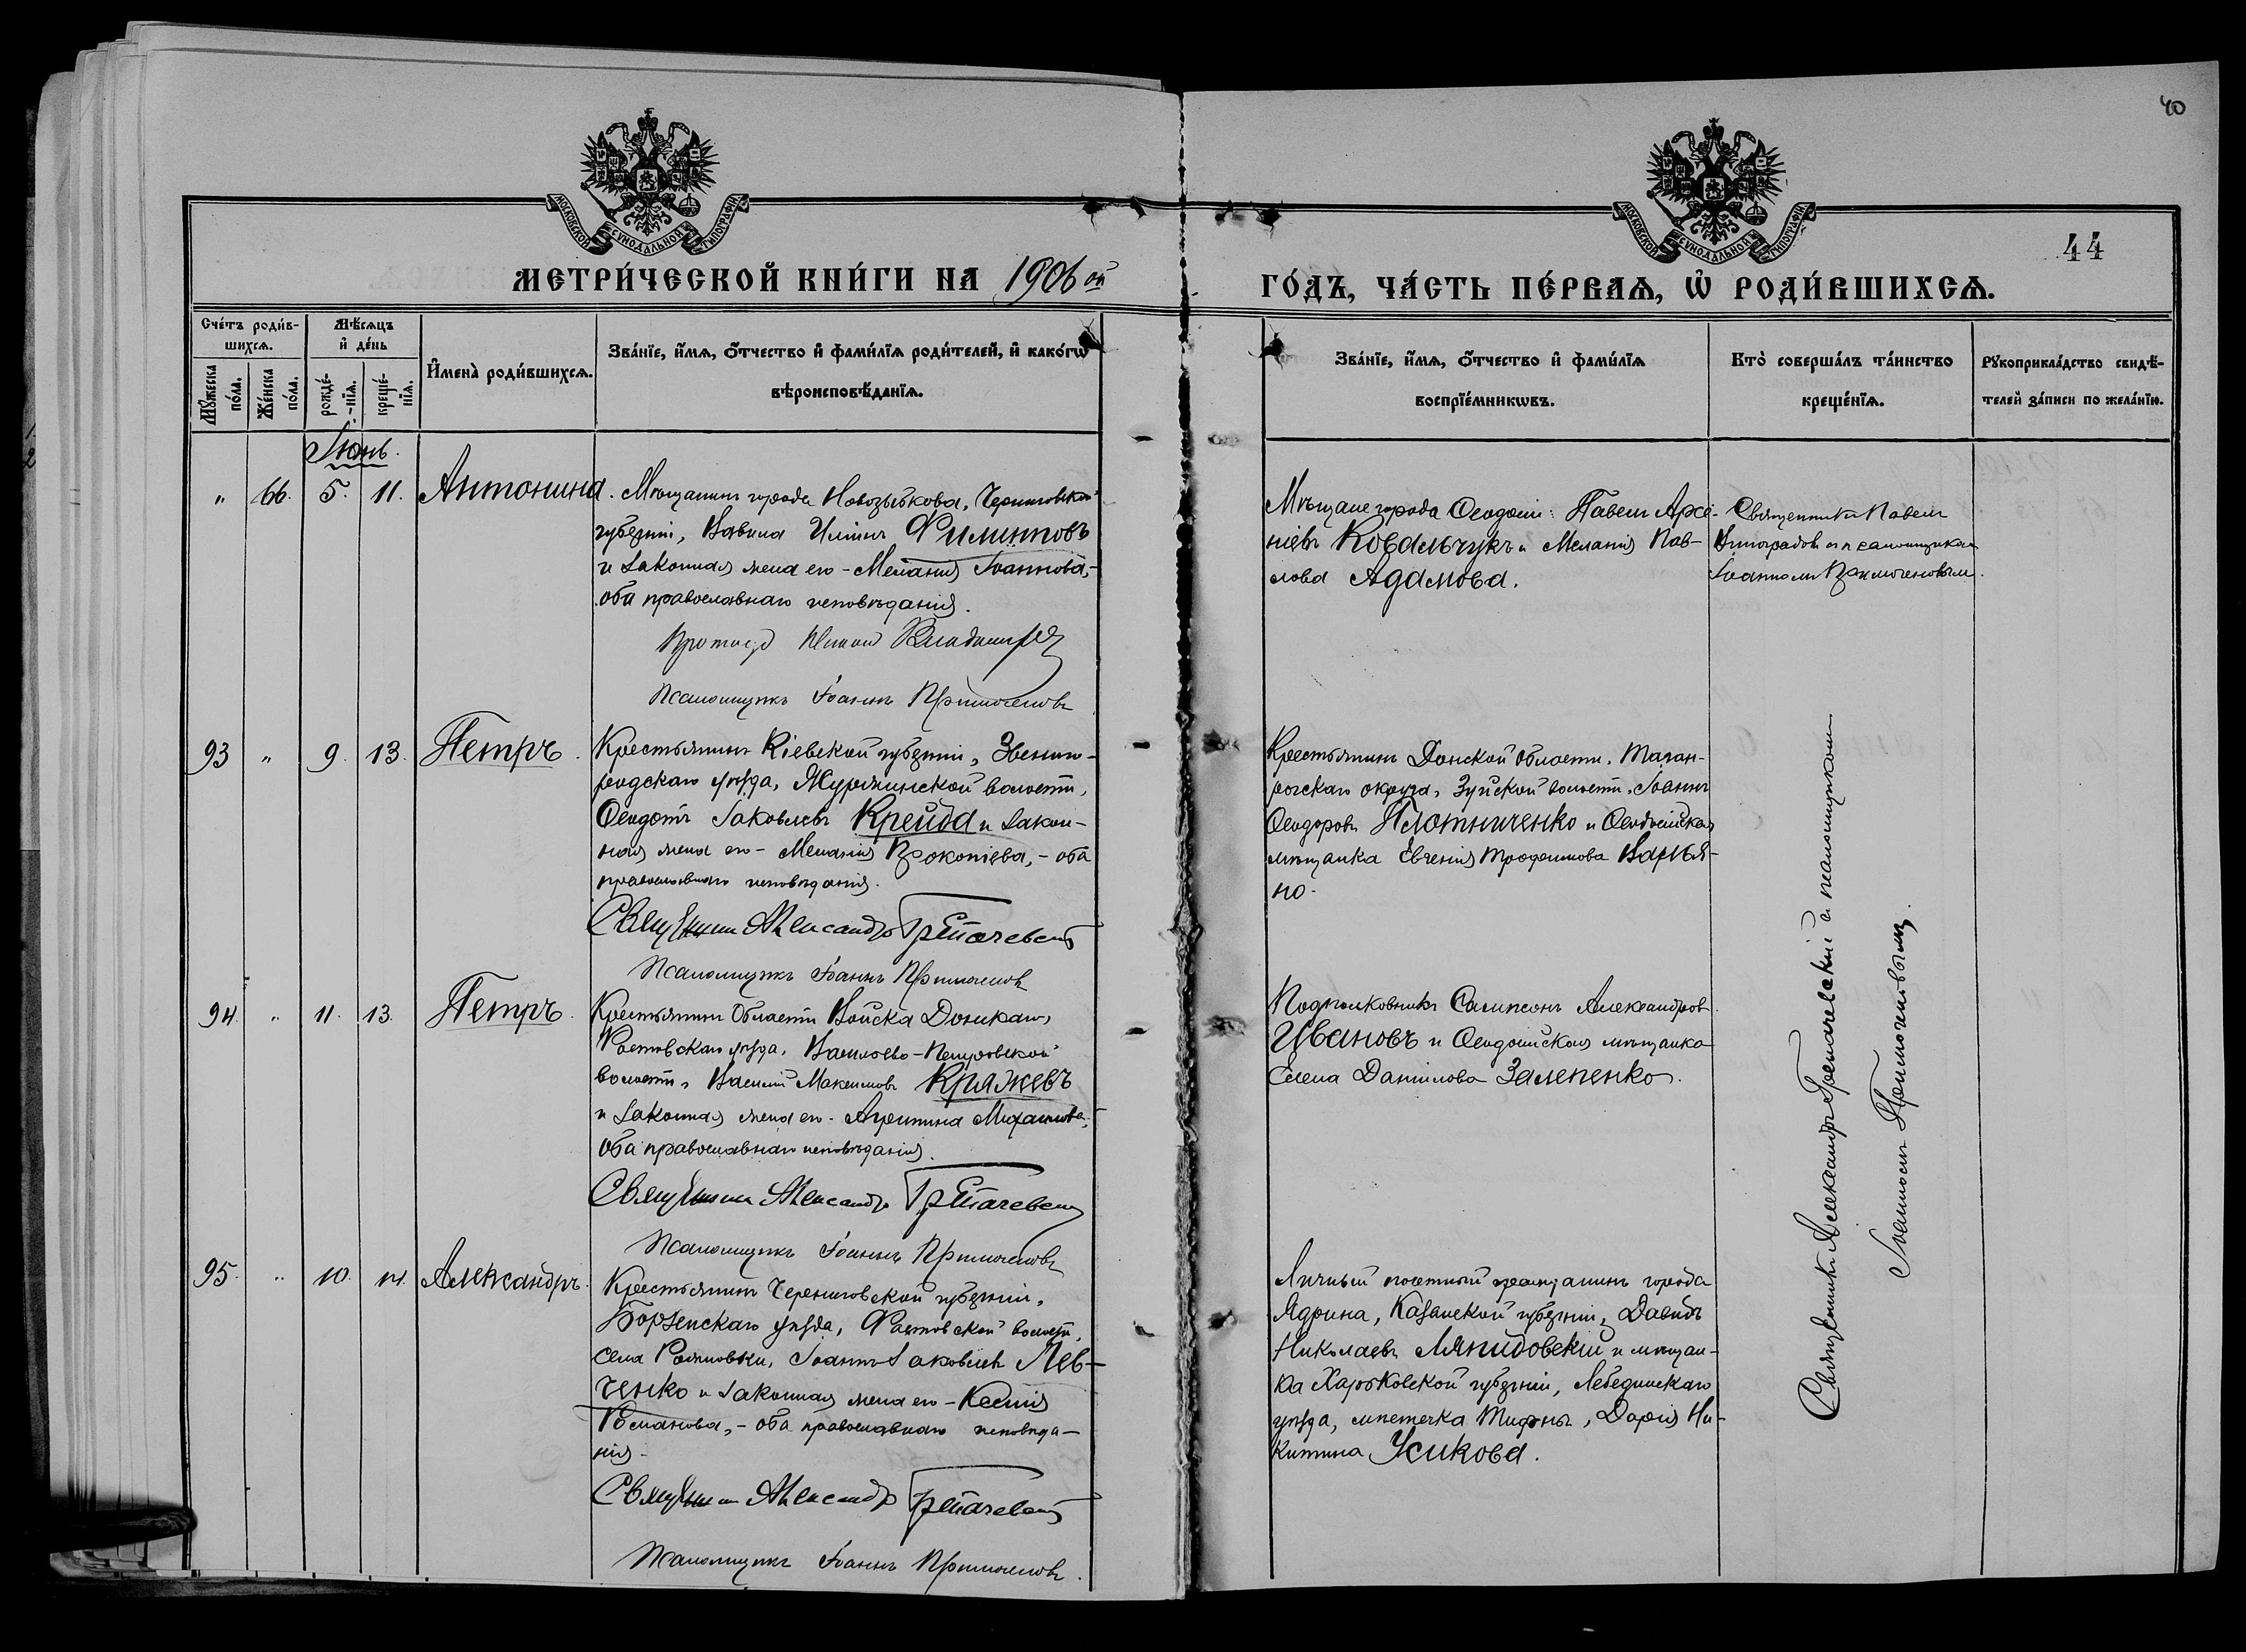 40
44
МОСКОВСКОЙ СѴНОДАЛЬНОЙ ТИПОГРАФІИ
МОСКОВСКОЙ СѴНОДАЛЬНОЙ ТИПОГРАФІИ
МЕТРИ́ЧЕСКОЙ КНИ́ГИ НА 1906 ой
ГО́ДЪ, ЧА́СТЬ ПЕ́РВАѦ, Ѡ҆ РОДИ́ВШИХСѦ.
Сче́тъ роди́в-
шихсѧ.
Мѣ́сѧцъ
и҆ де́нь
Мꙋ́жеска
по́ла.
Же́нска
по́ла.
рожде́-
нїѧ.
креще́-
нїѧ.
И҆мена̀ роди́вшихсѧ.
Зва́нїе, и҆́мѧ, ѻ҆́тчество и҆ фами́лїѧ роди́телей, и҆ како́гѡ
вѣроисповѣ́данїѧ.
Зва́нїе, и҆́мѧ, ѻ҆́тчество и҆ фами́лїѧ
воспрїе́мникѡвъ.
Кто̀ соверша́лъ та́инство
креще́нїѧ.
Рꙋкоприкла́дство свидѣ́-
телей за́писи по жела́нїю.
Іюнь.
" 66. 5. 11. Антонина.
Мѣщанинъ города Новозыбкова, Черниговской
губерніи, Вавила Ильинъ Филипповъ
и законная жена его - Меланія Іоаннова, -
оба православнаго исповѣданія.
Псаломщикъ Іоаннъ
Мѣщане города Ѳеодосіи: Павелъ Арсе-
ніевъ Ковальчукъ и Меланія Пав-
лова Адамова.
Священникъ Павелъ
Виноградовъ съ псаломщикомъ
Іоанномъ
93 " 9. 13. Петръ.
Крестьянинъ Кіевской губерніи, Звениго-
родскаго уѣзда, волости,
Ѳеодотъ Іаковлевъ Крейда и закон-
ная жена его - Меланія Прокопіева, - оба
православнаго исповѣданія.
Священникъ Александръ
Псаломщикъ Іоаннъ
Крестьянинъ Донской области, Таган-
рогскаго округа, Зуйской волости, Іоаннъ
Ѳеодоровъ Плотниченко и Ѳеодосійская
мѣщанка Евгенія Трофимова
но.
94. " 11. 13. Петръ.
Крестьянинъ Области Войска Донскаго,
Ростовскаго уѣзда, Васильево-Петровской
волости, Василій Максимовъ Кряжевъ
и законная жена его - Агриппина Михаилова,
оба православнаго исповѣданія.
Священникъ Александръ
Псаломщикъ Іоаннъ
Подполковникъ Сампсонъ Александровъ
Ивановъ и Ѳеодосійская мѣщанка
Елена Даніилова Залепенко.
95. " 10. 14. Александръ.
Крестьянинъ Черниговской губерніи,
Борзенскаго уѣзда, волости,
села Іоаннъ Іаковлевъ Лев-
ченко и законная жена его - Ксенія
Романова, - оба православнаго исповѣда-
нія.
Священникъ Александръ
Псаломщикъ Іоаннъ
Личный почетный гражданинъ города
Ядрина, Казанской губерніи, Давидъ
Николаевъ Ляпидовскій и мѣщан-
ка Харьковской губерніи, Лебединскаго
уѣзда, мѣстечка Дарія Ни-
китина Усикова.
Священникъ Александръ и псаломщикомъ
Іоанномъ